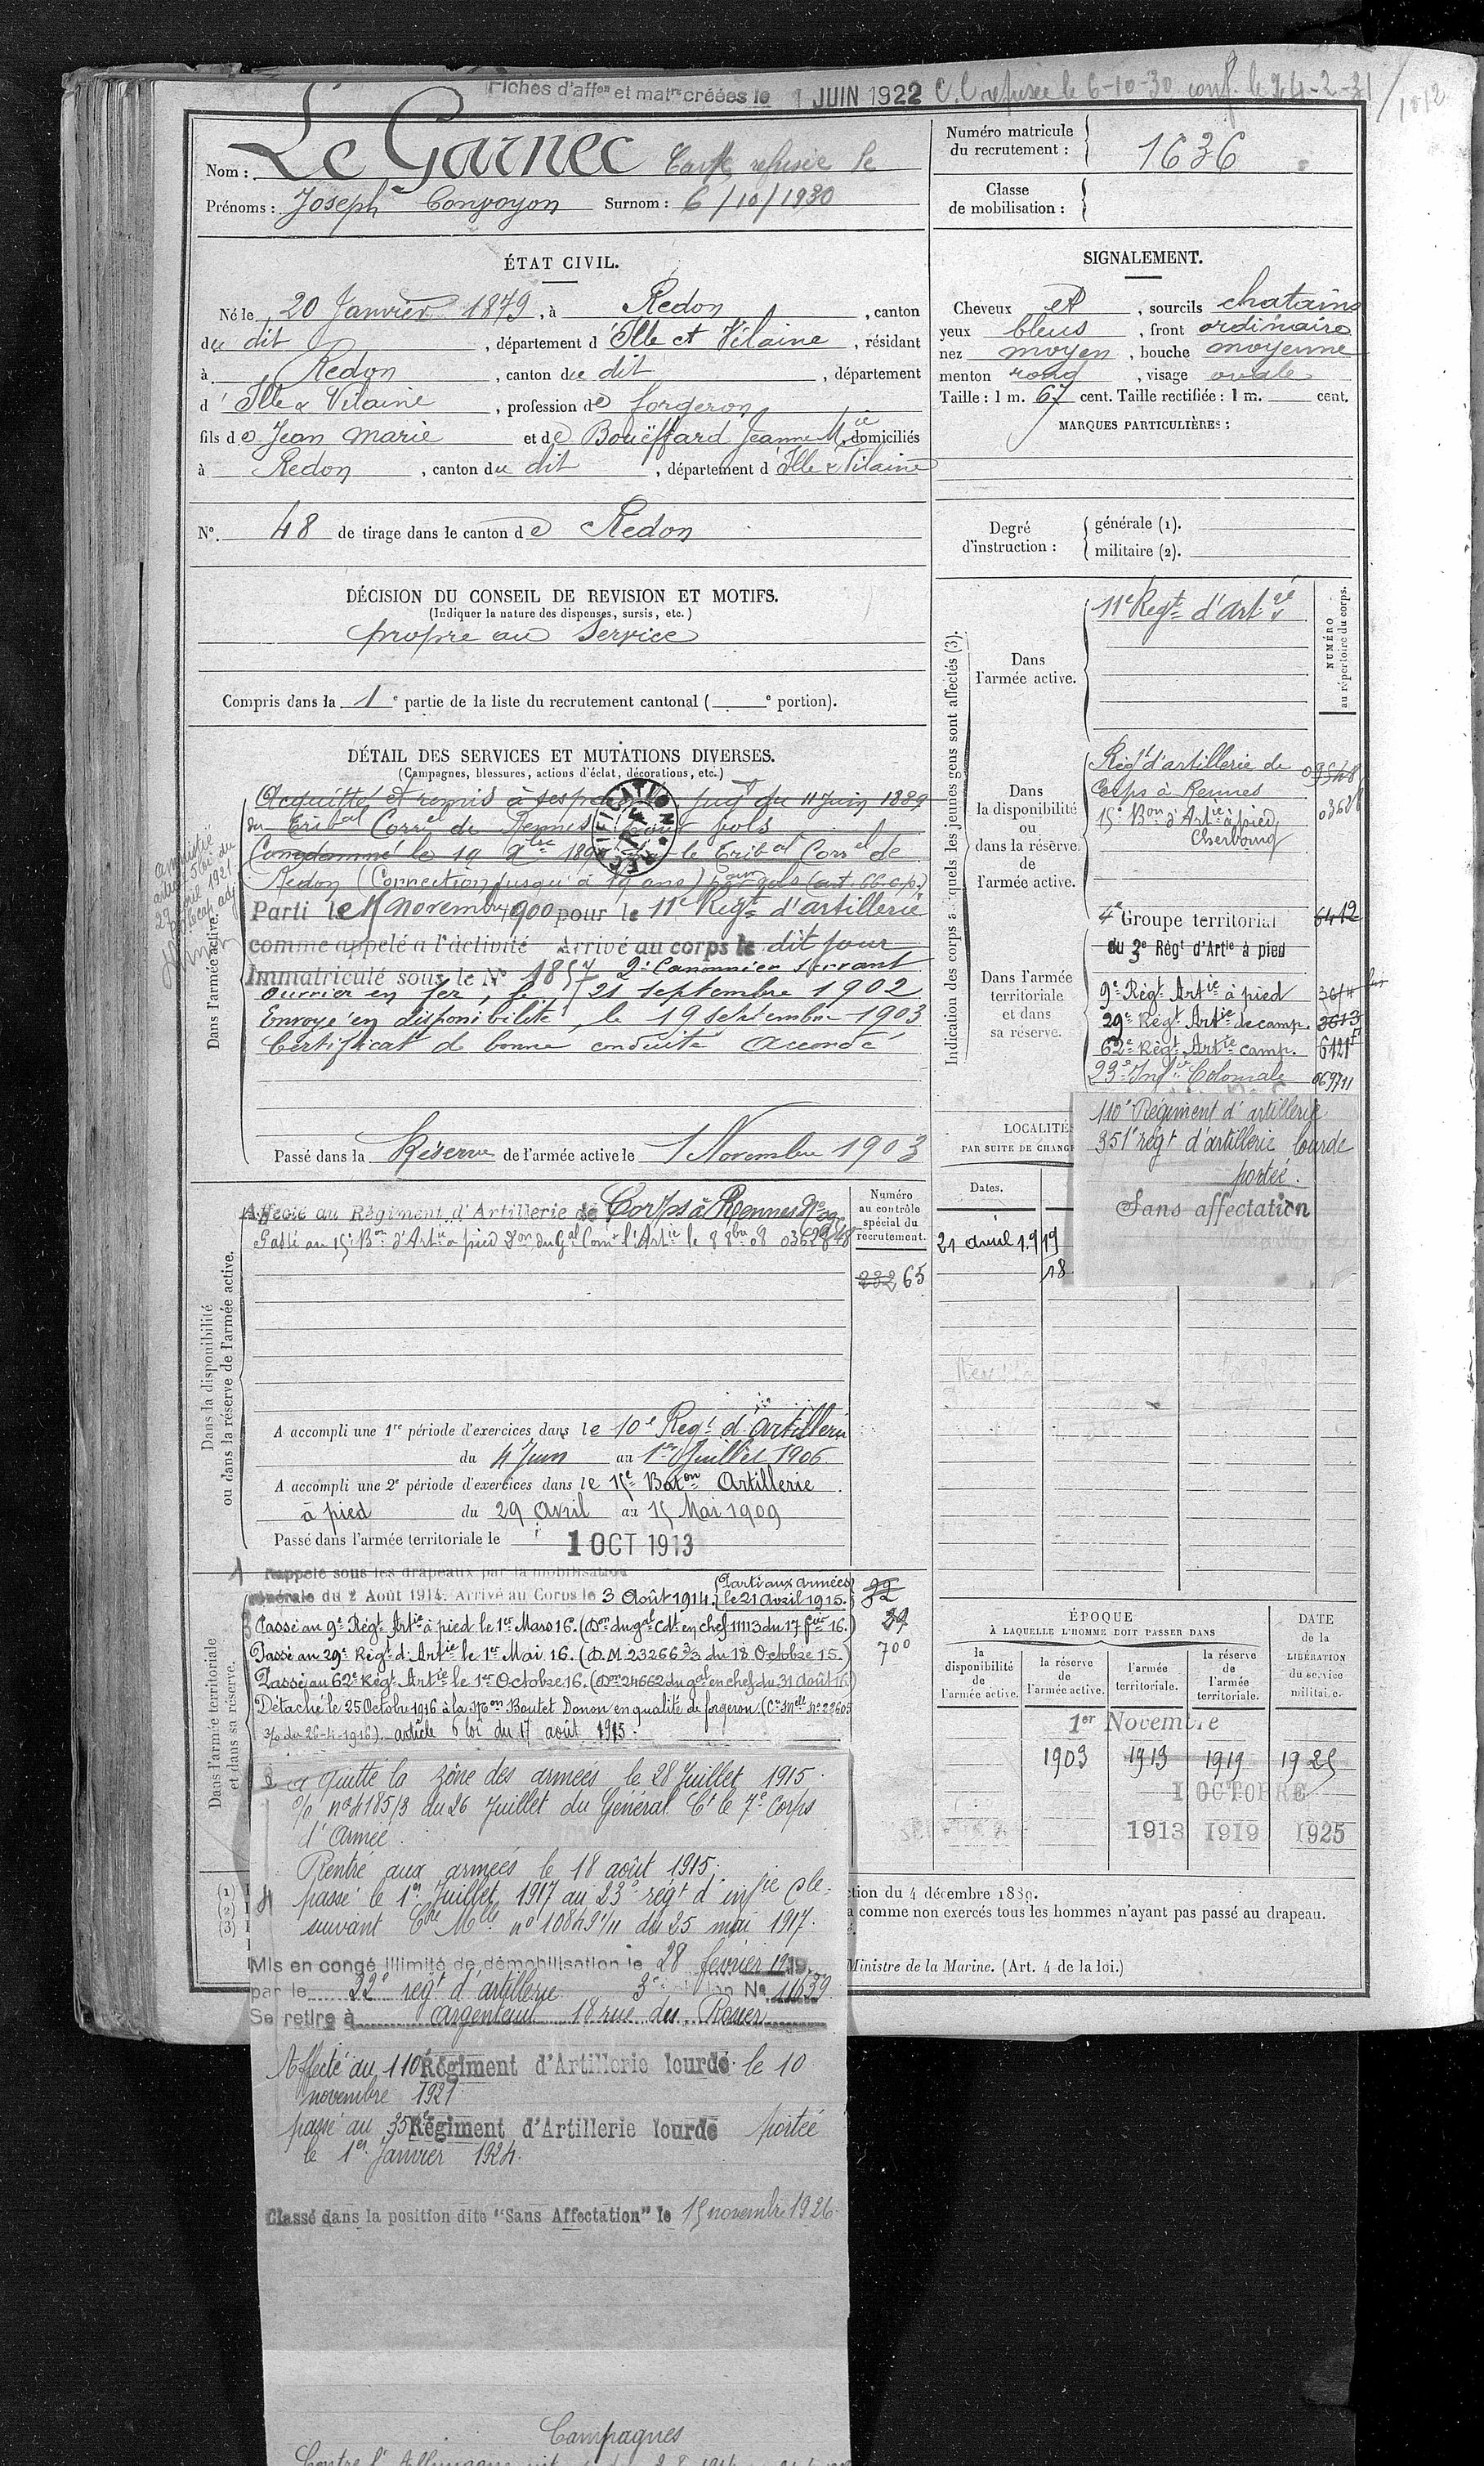 Fiches d'affon et matre créées le 1 JUIN 1922 C.C refusée le 6-10-30 conf. le 24-2-31
1012
Nom : Le Garnec Carte refusée le
Prénoms : Joseph Convoyon Surnom : 6/10/1930
Numéro matricule du recrutement : 1636
Classe de mobilisation :
ÉTAT CIVIL.
Né le 20 Janvier 1879, à Redon, canton
du dit, département d'Ille et Vilaine, résidant
à Redon, canton du dit, département
d'Ille & Vilaine, profession de forgeron
fils de Jean Marie et de Bouëffard Jeanne Mie domiciliés
à Redon, canton du dit, département d'Ille & Vilaine
No. 48 de tirage dans le canton de Redon
SIGNALEMENT.
Cheveux et, sourcils chatains
yeux bleus, front ordinaire
nez moyen, bouche moyenne
menton rond, visage ovale
Taille : 1 m. 67 cent. Taille rectifiée : 1 m. cent.
MARQUES PARTICULIÈRES :
Degré d'instruction : générale (1).
militaire (2).
DÉCISION DU CONSEIL DE REVISION ET MOTIFS.
(Indiquer la nature des dispenses, sursis, etc.)
propre au service
Compris dans la 1e partie de la liste du recrutement cantonal ( e portion).
DÉTAIL DES SERVICES ET MUTATIONS DIVERSES.
(Campagnes, blessures, actions d'éclat, décorations, etc.)
Dans l'armée active.
Acquitté et remis à ses jugt du 11 Juin 1889
du Tribal Correl de Rennes pour vols
Condamné le 19 le Tribal Correl de
Redon (Correction jusqu'à ans) pour vols
RECTIFICATION
amnistié
1921
Parti le 1 novembre 1900 pour le 11e Regt d'artillerie
comme appelé à l'activité Arrivé au corps le dit jour
Immatriculé sous le No 1857 2e Canonnier servant
ouvrier en fer, le 21 septembre 1902
Envoyé en disponibilité, le 19 septembre 1903
Certificat de bonne conduite accordé
Passé dans la Réserve de l'armée active le 1 Novembre 1903
Indication des corps auxquels les jeunes gens sont affectés (3).
NUMÉRO au répertoire du corps.
Dans l'armée active.
11e Regt d'artie
Dans la disponibilité ou dans la réserve de l'armée active.
Regt d'artillerie de
Corps à Rennes
15e Bon d'Artie à pied 03628
Cherbourg
Dans l'armée territoriale et dans sa réserve.
4e Groupe territorial 6412
du 3e Régt d'Artie à pied
9e Régt Artie à pied
29e Régt Artie de camp. 3613
62e Régt Artie camp. 6121
23e Infie Coloniale 069711
110e Régiment d'artillerie
351e régt d'artillerie lourde
portée.
Sans affectation
LOCALITÉS
PAR SUITE DE CHANG
Dates.
21 avril 1919
18
Dans la disponibilité ou dans la réserve de l'armée active.
Affecté au Régiment d'Artillerie de Corps à Rennes
Passé au 15e Bon d'Artie à pied Don du Gal Comt l'Artie le 8 8bre 08 03628
Numéro au contrôle spécial du recrutement.
232 65
A accompli une 1re période d'exercices dans le 10e Regt d'Artillerie
du 4 Juin au 1er Juillet 1906
A accompli une 2e période d'exercices dans le 15e Baton Artillerie
à pied du 29 Avril au 15 Mai 1909
Passé dans l'armée territoriale le 1 OCT 1913
Dans l'armée territoriale et dans sa réserve.
Rappelé sous les drapeaux par la mobilisation
générale du 2 Août 1914. Arrivé au Corps le 3 Août 1914. (Parti aux armées le 21 avril 1915.)
Passé au 9e Régt Artie à pied le 1er Mars 16. (Don du gal Cdt en chef 11113 du 17 fier 16.)
Passé au 29e Régt d'Artie le 1er Mai 16. (D.M. 23266 3/3 du 18 Octobre 15.)
Passé au 62e Régt Artie le 1er Octobre 16. (Don 24662 du gal en chef du 31 Août 16)
Détaché le 25 Octobre 1916 à la Mon Boutet Donon en qualité de forgeron. (Cre Melle No 22605
3/0 du 26-4-1916). article 6 loi du 17 août 1915.
39
700
a quitté la zône des armées le 28 Juillet 1915.
o/o no 4185/3 du 26 Juillet du Général Ct le 7e Corps
d'Armée.
Rentré aux armées le 18 août 1915.
passé le 1er Juillet 1917 au 23e régt d'infie Cle.
suivant Cre Mlle no 10849 3/11 du 25 mai 1917.
Mis en congé illimité de démobilisation le 28 fevrier 1919.
par le 22e regt d'artillerie 3e No 11639
Se retire à argenteuil 18 rue du Rosier
Affecté au 110e Régiment d'Artillerie lourde le 10
novembre 1921
passé au 351e Régiment d'Artillerie lourde portée
le 1er Janvier 1924.
Classé dans la position dite "Sans Affectation" le 15 novembre 1926
Campagnes
ÉPOQUE
À LAQUELLE L'HOMME DOIT PASSER DANS
DATE de la LIBÉRATION du service militaire.
la disponibilité de l'armée active.
la réserve de l'armée active.
l'armée territoriale.
la réserve de l'armée territoriale.
1er Novembre
1903 1913 1919 1925
1 OCTOBRE
1913 1919 1925
(1)
(2)
(3)
ction du 4 décembre 1889.
a comme non exercés tous les hommes n'ayant pas passé au drapeau.
Ministre de la Marine. (Art. 4 de la loi.)